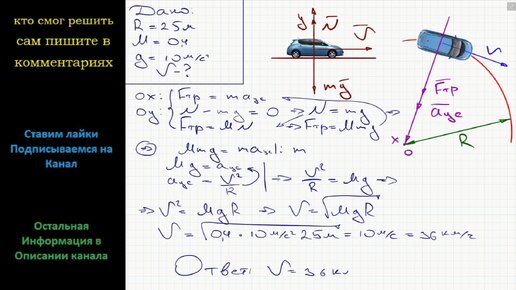 кто смог решить
сам пишите в
комментариях
Ставим лайки
Подписываемся на
Канал
Остальная
Информация в
Описании канала
Дано:
R = 25м
M = 0,4
g = 10 м/с²
V - ?
N
V
mg
ox: Fтр = maцс
oy: N - mg = 0 ⇒ N = mg
Fтр = MN Fтр = Mmg
⇒ Mmg = maцс |: m
Mg = aцс
aцс = V²/R ⇒ V²/R = Mg ⇒
⇒ V² = MgR ⇒ V = √MgR
V = √0,4 · 10 м/с² 25м = 10 м/с = 36 км/г
Ответ: V = 36 кл
V
Fтр
aцс
X
O
R